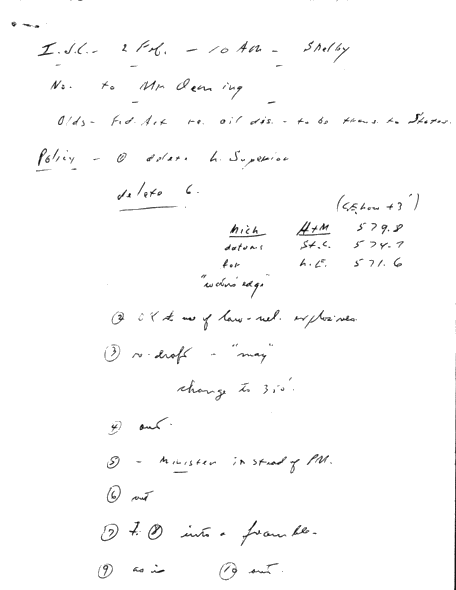 I.J.C. - 2 Feb. - 10 AM - Shelby
No. to Mr Deming
Olds - Fed. Act re. oil dis. - to be trans. to States.
Policy - ① delete L. Superior
delete 6.
(G.E. how +3')
Mich H+M 579.8
datums St.C. 574.7
for L.E. 571.6
"water's edge"
② OK to use of low-vel. explosives
③ re-draft - "may"
change to 310'.
④ out.
⑤ - Minister instead of PM.
⑥ out
⑦ & ⑧ into a preamble.
⑨ as is ⑩ out.